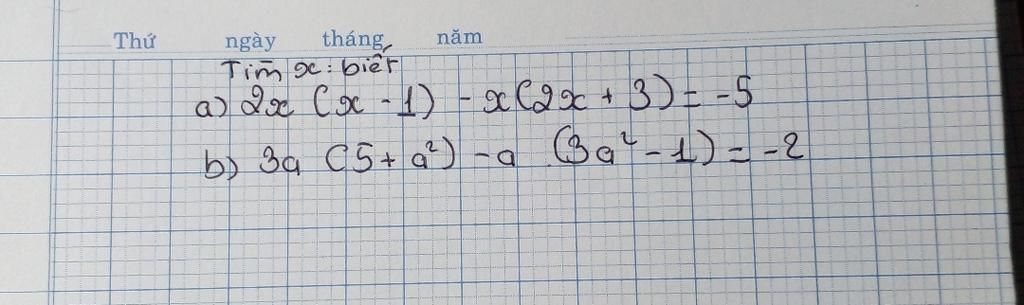 Thứ ngày tháng năm
Tìm x: biết
a) 2x (x - 1) - x(2x + 3) = -5
b) 3a (5 + a²) - a (3a² - 1) = -2